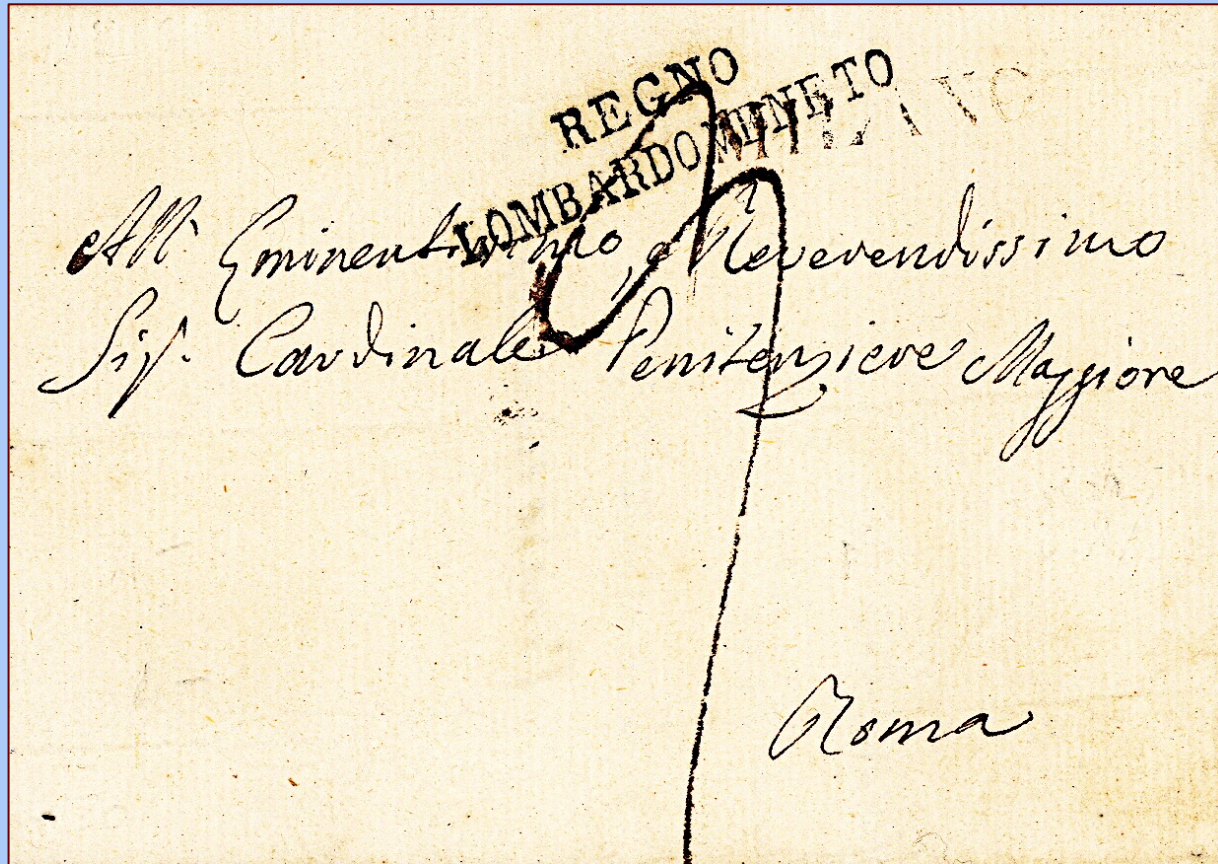 REGNO
LOMBARDO VENETO
MILANO
All' Eminentissimo, e Reverendissimo
Sig.r Cardinale Penitenziere Maggiore
Roma